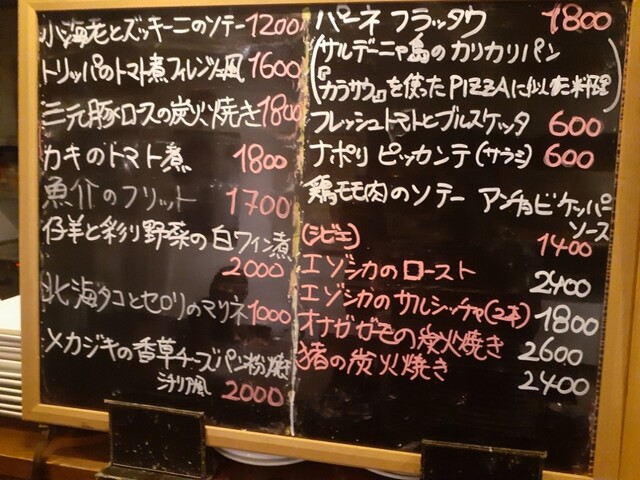 小海老とズッキーニのソテー 1200
トリッパのトマト煮フィレンツェ風 1600
三元豚ロースの炭火焼き 1800
カキのトマト煮 1800
魚介のフリット 1700
仔羊と彩り野菜の白ワイン煮
2000
北海タコとセロリのマリネ 1000
メカジキの香草チーズパン粉焼き
シチリア風 2000
パーネ フラッタウ 1800
(サルデーニャ島のカリカリパン
『カラサウ』を使ったPIZZAに似た料理)
フレッシュトマトとブルスケッタ 600
ナポリ ピッカンテ(サラミ) 600
鶏モモ肉のソテー アンチョビケッパー
ソース
1400
(ジビエ)
エゾシカのロースト 2400
エゾシカのサルシッチャ(2本) 1800
オナガガモの炭火焼き 2600
猪の炭火焼き 2400